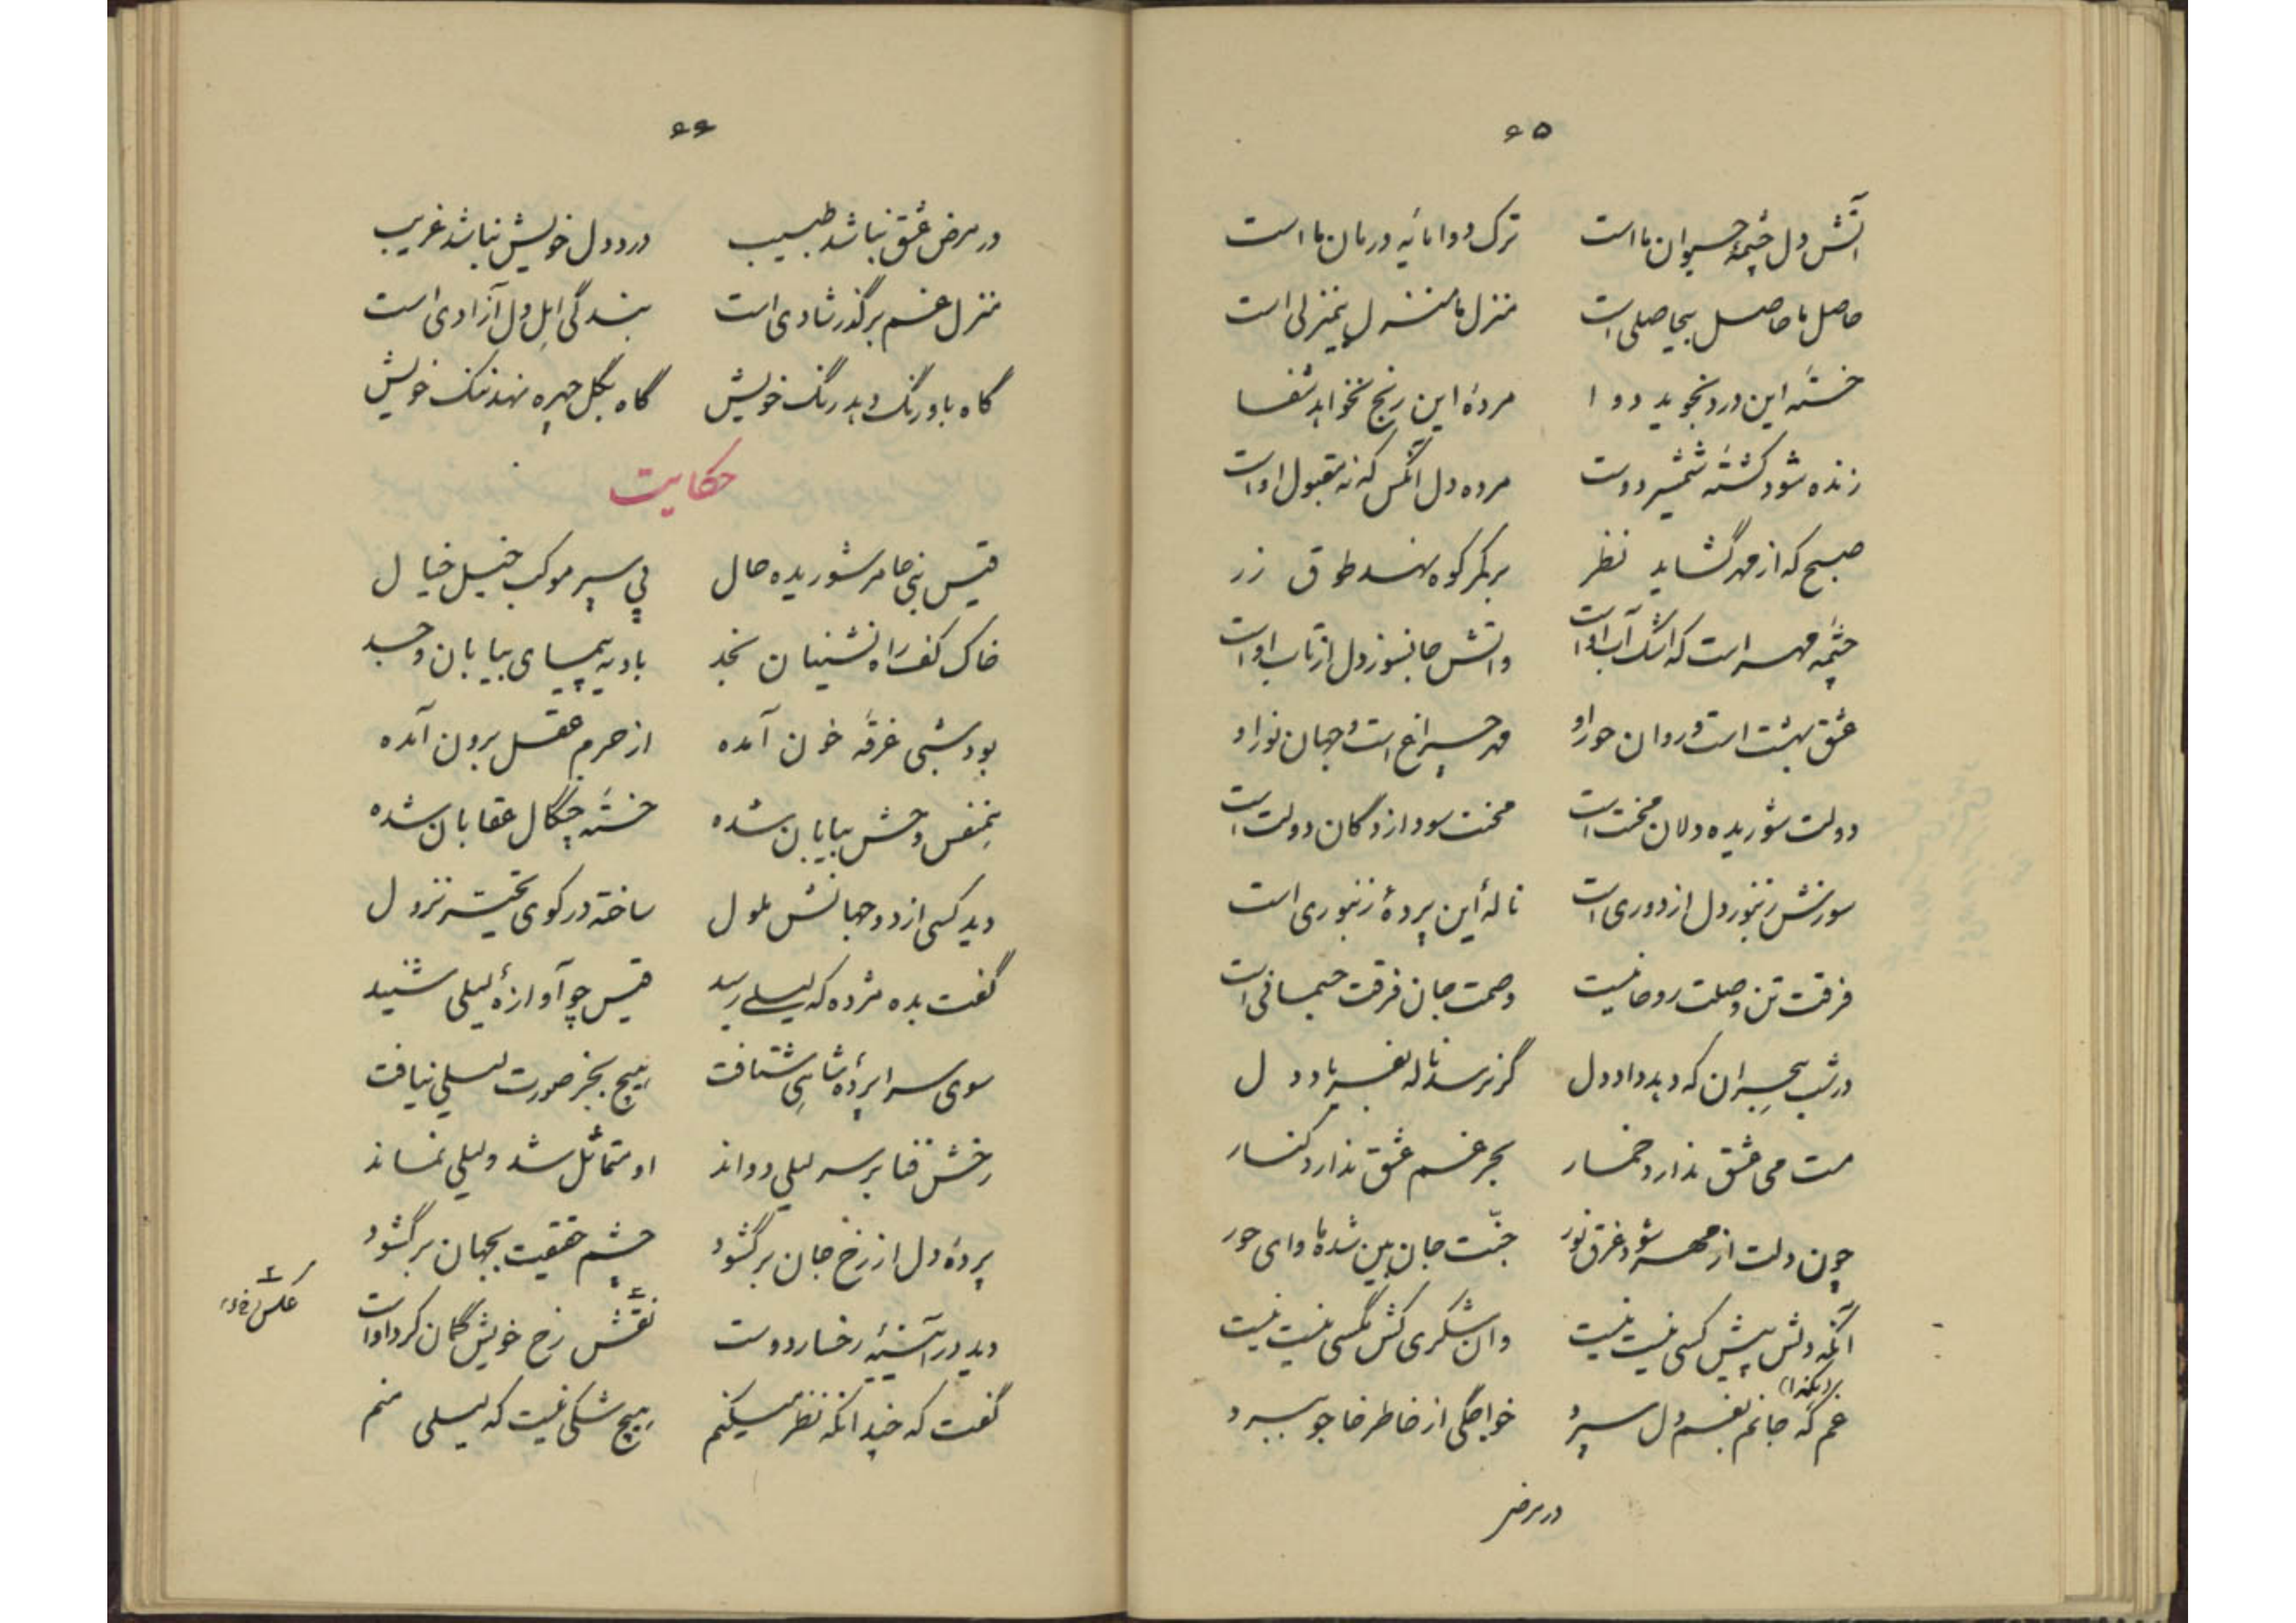 ۶۵
آتش دل چشمهٔ حیوان ما است ترک دوا مایهٔ درمان ما است
حاصل ما حاصل بیحاصلی است منزل ما منزل بیمنزلی است
خستهٔ این درد نجوید دوا مردهٔ این رنج نخواهد شفا
زنده شود کشتهٔ شمشیر دوست مرده دل آنکس که نه مقبول اوست
صبح که از مهر گشاید نظر بر کمر کوه نهد طوق زر
چشمهٔ مهر است که اشک آب اوست واتش جانسوز دل از تاب اوست
عشق بهشت است و روان حور او مهر چراغ است و جهان نور او
دولت شوریده دلان محنت است محنت سودازدگان دولت است
سوزش زنبور دل از دوری است نالهٔ این پردهٔ زنبوری است
فرقت تن وصلت روحانیست وصمت جان فرقت جسمانی است
در شب هجران که دهد داد دل گر نرسد ناله بفریاد دل
مست می عشق ندارد خمار بحر غم عشق ندارد کنار
چون دلت از مهر شود غرق نور جنّت جان بین شده ماوای حور
آنکه دلش پیش کسی نیست نیست وان شکری کش مگسی نیست نیست
غم که جانم بغم دل سپرد خواجگی از خاطر خاجو ببرد
در مرض
۶۶
در مرض عشق نباشد طبیب درد دل خویش نباشد غریب
منزل غم برگذر شادی است بندگی اهل دل آزادی است
گاه باورنگ دهد رنگ خویش گاه بگلچهره نهد ننگ خویش
حکایت
قیس بنی عامر شوریده حال پی سپر موکب خیل خیال
خاک کف راه نشینان نجد بادیه پیمای بیابان وجد
بود شبی غرقه خون آمده از حرم عقل برون آمده
همنفس وحش بیابان شده خستهٔ چنگال عقابان شده
دید کسی از دو جهانش ملول ساخته در کوی تحیّر نزول
گفت بده مژده که لیلی رسید قیس چو آوازهٔ لیلی شنید
سوی سراپردهٔ شاهی شتافت هیچ بجز صورت لیلی نیافت
رخش فنا بر سر لیلی دواند او متماثل شد و لیلی نماند
پردهٔ دل از رخ جان برگشود چشم حقیقت بجهان برگشود
دید در آئینهٔ رخسار دوست نقش رخ خویش گمان کرد اوست
عکس
گفت که چندانکه نظر میکنم هیچ شکی نیست که لیلی منم